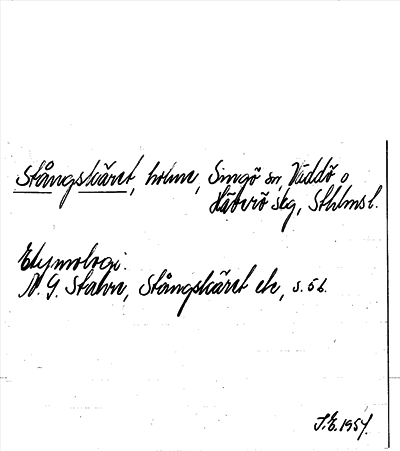 Stångskäret, holme, Singö sn, Väddö o
Häverö skg, Sthlmsl.
Etymologi.
N. G. Stahre, Stångskäret etc, s. 5 f.
S.E. 1957.